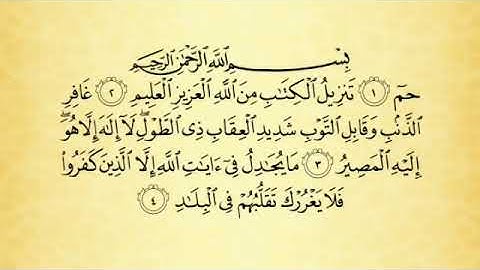 بِسْمِ ٱللَّهِ ٱلرَّحْمَٰنِ ٱلرَّحِيمِ
حمٓ ١ تَنزِيلُ ٱلْكِتَٰبِ مِنَ ٱللَّهِ ٱلْعَزِيزِ ٱلْعَلِيمِ ٢ غَافِرِ
ٱلذَّنۢبِ وَقَابِلِ ٱلتَّوْبِ شَدِيدِ ٱلْعِقَابِ ذِى ٱلطَّوْلِ ۖ لَآ إِلَٰهَ إِلَّا هُوَ ۖ
إِلَيْهِ ٱلْمَصِيرُ ٣ مَا يُجَٰدِلُ فِىٓ ءَايَٰتِ ٱللَّهِ إِلَّا ٱلَّذِينَ كَفَرُوا۟
فَلَا يَغْرُرْكَ تَقَلُّبُهُمْ فِى ٱلْبِلَٰدِ ٤